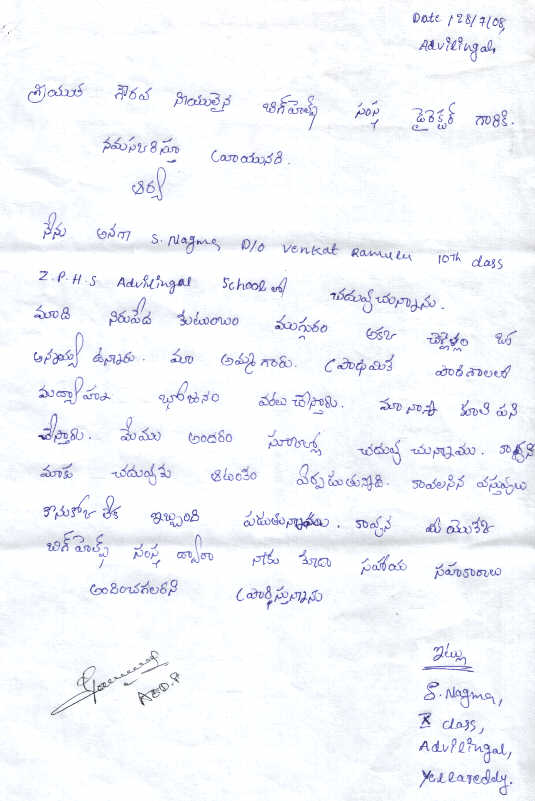 Date, 28/7/08,
Advilingal,
శ్రీయుత గౌరవ నీయులైన బిగ్‌హెల్ప్ సంస్థ డైరెక్టర్ గారికి.
నమస్కరిస్తూ వ్రాయునది.
ఆర్య
నేను అనగా S. Nagma, D/O Venkat Ramulu 10th class
Z.P.H.S Advilingal School లో చదువుచున్నాను.
మాది నిరుపేద కుటుంబం ముగ్గురం అక్క చెల్లెళ్లం ఒక
అన్నయ్య ఉన్నారు. మా అమ్మ గారు. ప్రాథమిక పాఠశాలలో
మధ్యాహ్న భోజనం వంట చేస్తారు. మా నాన్న కూలి పని
చేస్తారు. మేము అందరం స్కూల్లో చదువు చున్నాము. కావున
మాకు చదువుకు ఆటంకం ఏర్పడుతున్నది. కావలసిన వస్తువులు
కొనుకోలేక ఇబ్బంది పడుతున్నాము. కావున
బిగ్‌హెల్ప్ సంస్థ ద్వారా నాకు కూడా సహాయ సహకారాలు
అందించగలరని ప్రార్థిస్తున్నాను
ఇట్లు
S. Nagma,
X class,
Advilingal,
Yellareddy.